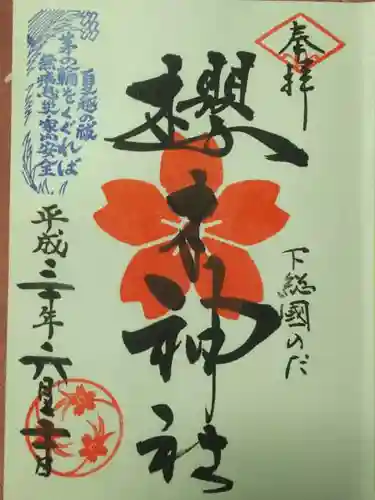 奉拝
下総國のだ
櫻木神社
夏越の祓
茅の輪をくぐれば
無病息災家内安全
平成三十年六月三十日